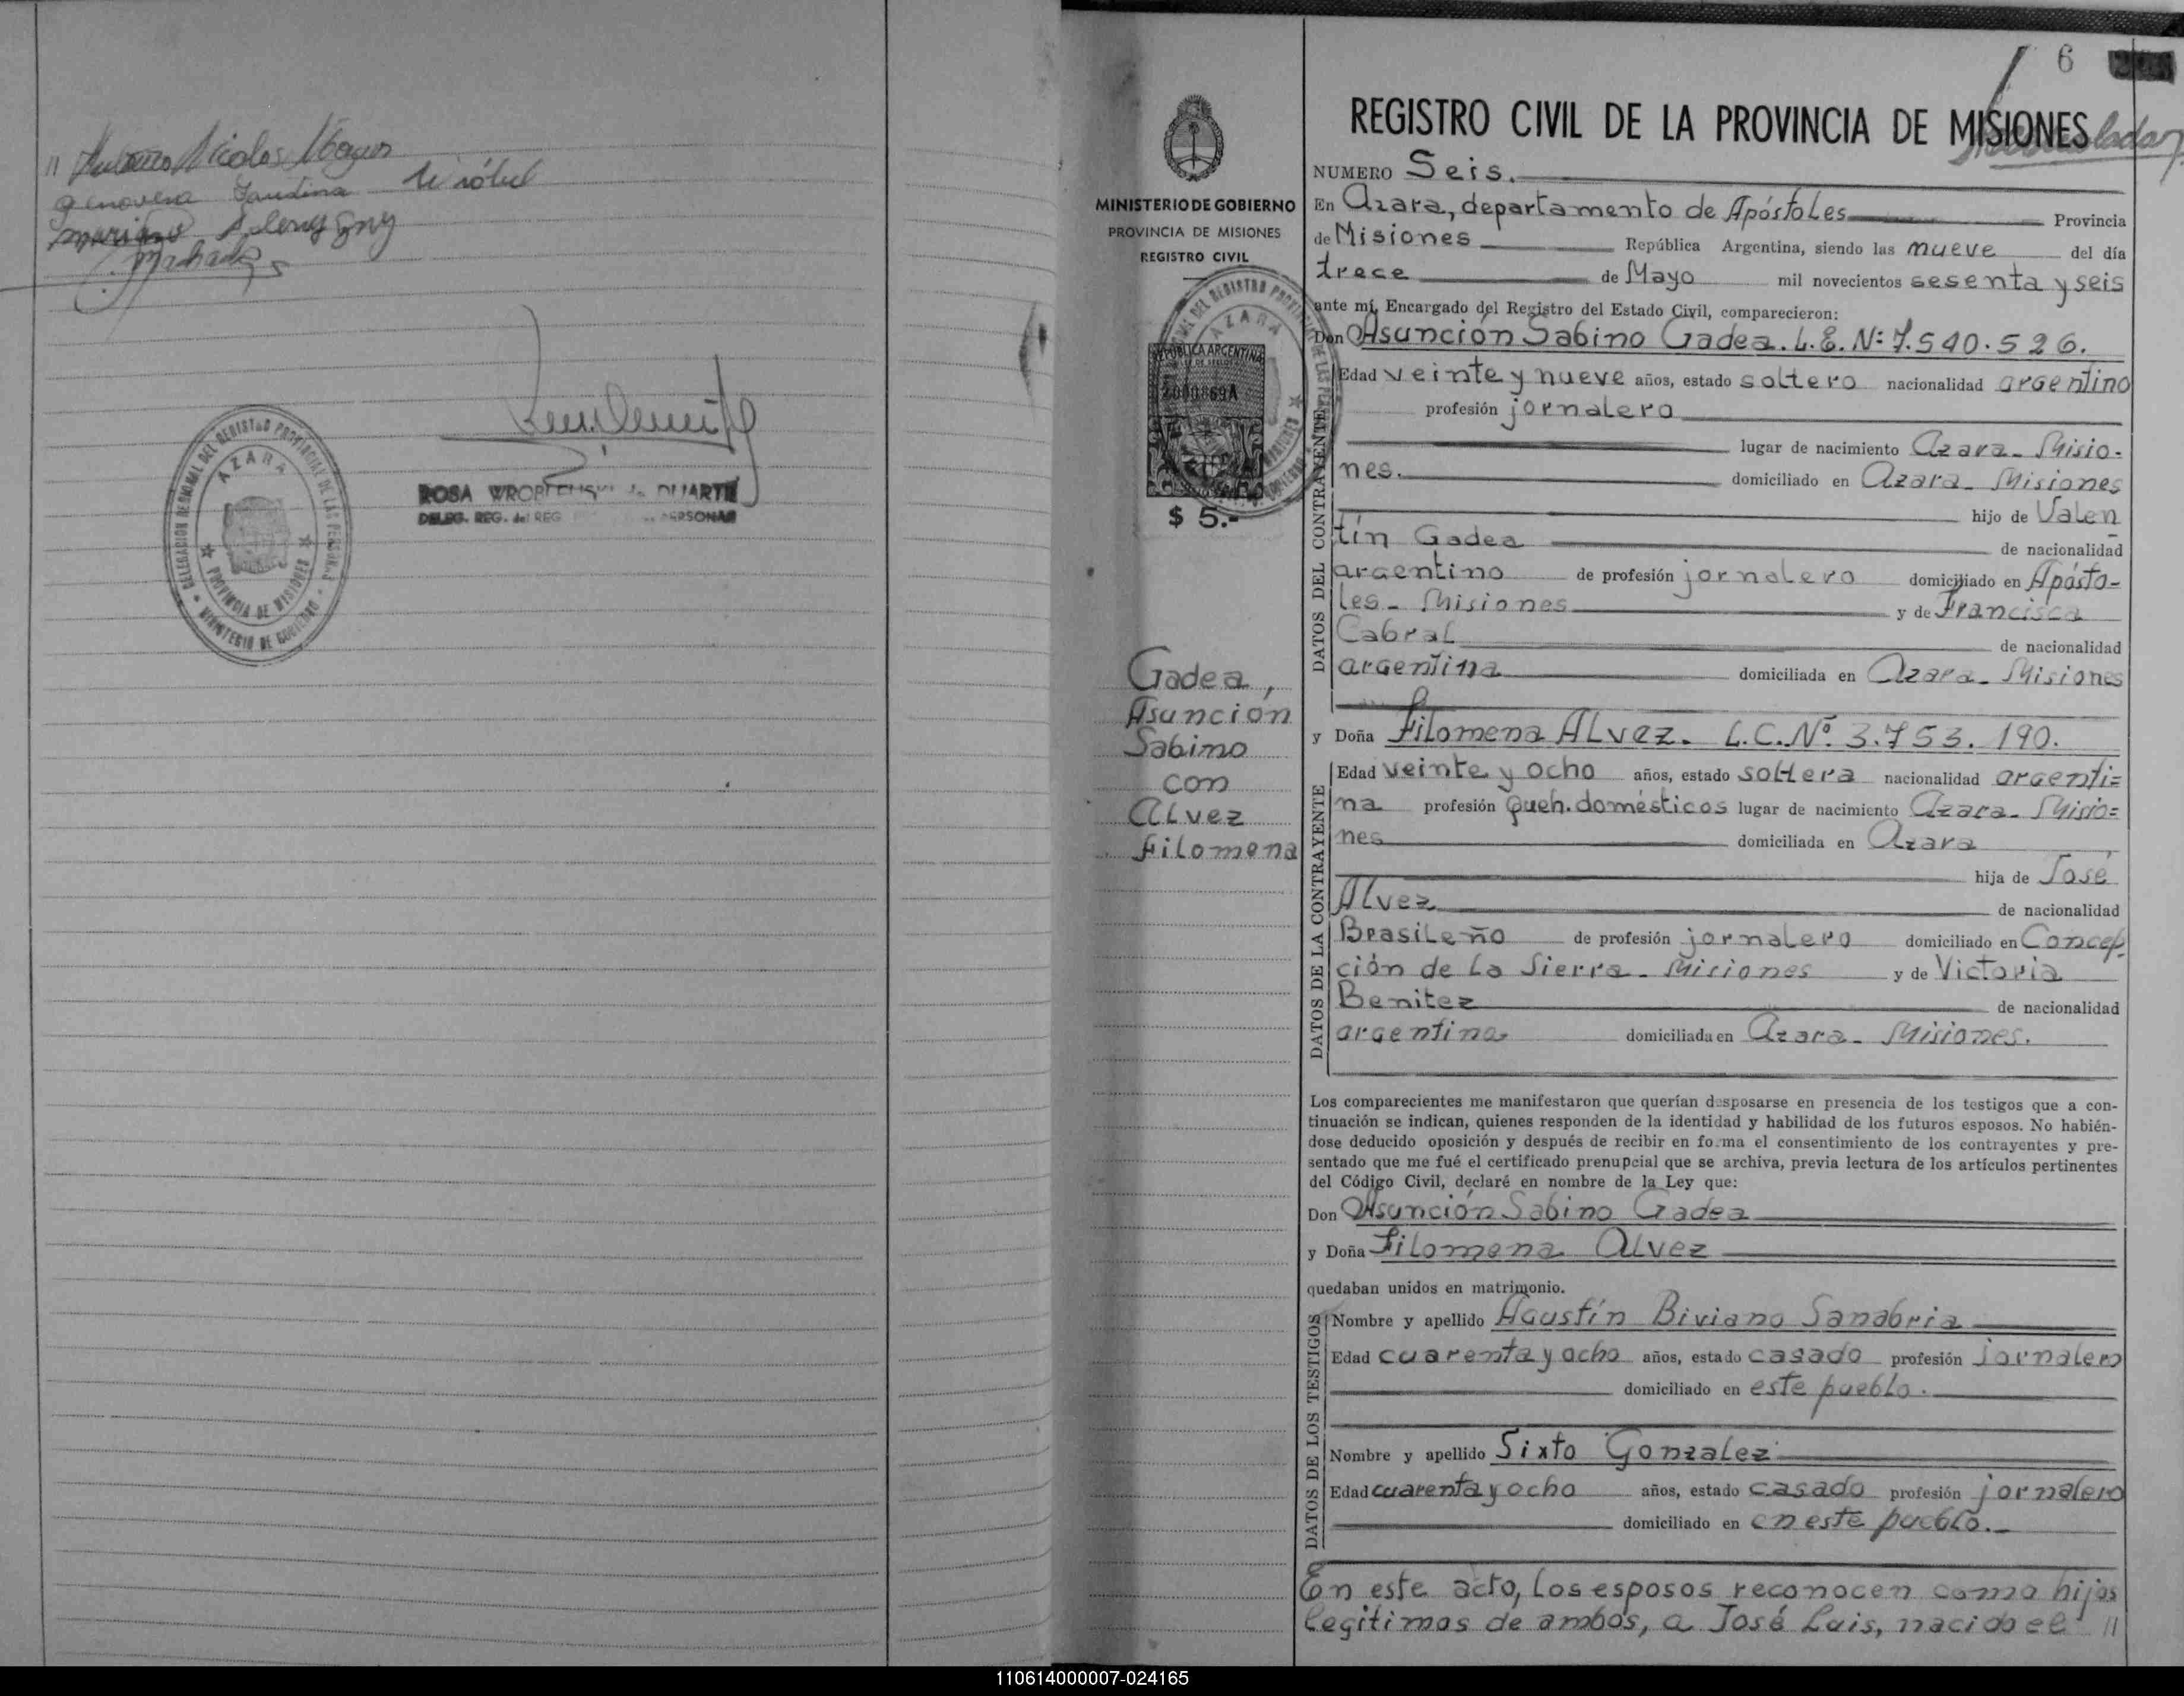 Nicolas
Genoveva
Mariano
DELEGACION REGIONAL DEL REGISTRO PROVINCIAL DE LAS PERSONAS
AZARA
PROVINCIA DE MISIONES
MINISTERIO DE GOBIERNO
ROSA DUARTE
DELEG. REG. del REG PERSONAS
6
REGISTRO CIVIL DE LA PROVINCIA DE MISIONES
MINISTERIO DE GOBIERNO
PROVINCIA DE MISIONES
REGISTRO CIVIL
AZARA
REPUBLICA ARGENTINA
$ 5.-
Gadea,
Asunción
Sabino
con
Alvez
Filomena
NUMERO Seis.
En Azara, departamento de Apóstoles Provincia
de Misiones República Argentina, siendo las nueve del día
trece de Mayo mil novecientos sesenta y seis
ante mí, Encargado del Registro del Estado Civil, comparecieron:
Don Asunción Sabino Gadea. L.E. Nº 7.540.526.
DATOS DEL CONTRAYENTE
Edad veinte y nueve años, estado soltero nacionalidad argentino
profesión jornalero
lugar de nacimiento Azara - Misio-
nes. domiciliado en Azara - Misiones
hijo de Valen
tín Gadea de nacionalidad
argentino de profesión jornalero domiciliado en Apósto-
les - Misiones y de Francisca
Cabral de nacionalidad
argentina domiciliada en Azara - Misiones
y Doña Filomena Alvez. L.C. Nº 3.753.190.
DATOS DE LA CONTRAYENTE
Edad veinte y ocho años, estado soltera nacionalidad argenti=
na profesión Queh. domésticos lugar de nacimiento Azara - Misio=
nes domiciliada en Azara
hija de José
Alvez de nacionalidad
Brasileño de profesión jornalero domiciliado en Concep-
ción de La Sierra - Misiones y de Victoria
Benitez de nacionalidad
argentina domiciliada en Azara - Misiones.
Los comparecientes me manifestaron que querían desposarse en presencia de los testigos que a con-
tinuación se indican, quienes responden de la identidad y habilidad de los futuros esposos. No habién-
dose deducido oposición y después de recibir en forma el consentimiento de los contrayentes y pre-
sentado que me fué el certificado prenupcial que se archiva, previa lectura de los artículos pertinentes
del Código Civil, declaré en nombre de la Ley que:
Don Asunción Sabino Gadea
y Doña Filomena Alvez
quedaban unidos en matrimonio.
DATOS DE LOS TESTIGOS
Nombre y apellido Agustín Biviano Sanabria
Edad cuarenta y ocho años, estado casado profesión jornalero
domiciliado en este pueblo.
Nombre y apellido Sixto Gonzalez
Edad cuarenta y ocho años, estado casado profesión jornalero
domiciliado en en este pueblo.
En este acto, los esposos reconocen como hijos
legítimos de ambos, a José Luis, nacido el //
110614000007-024165